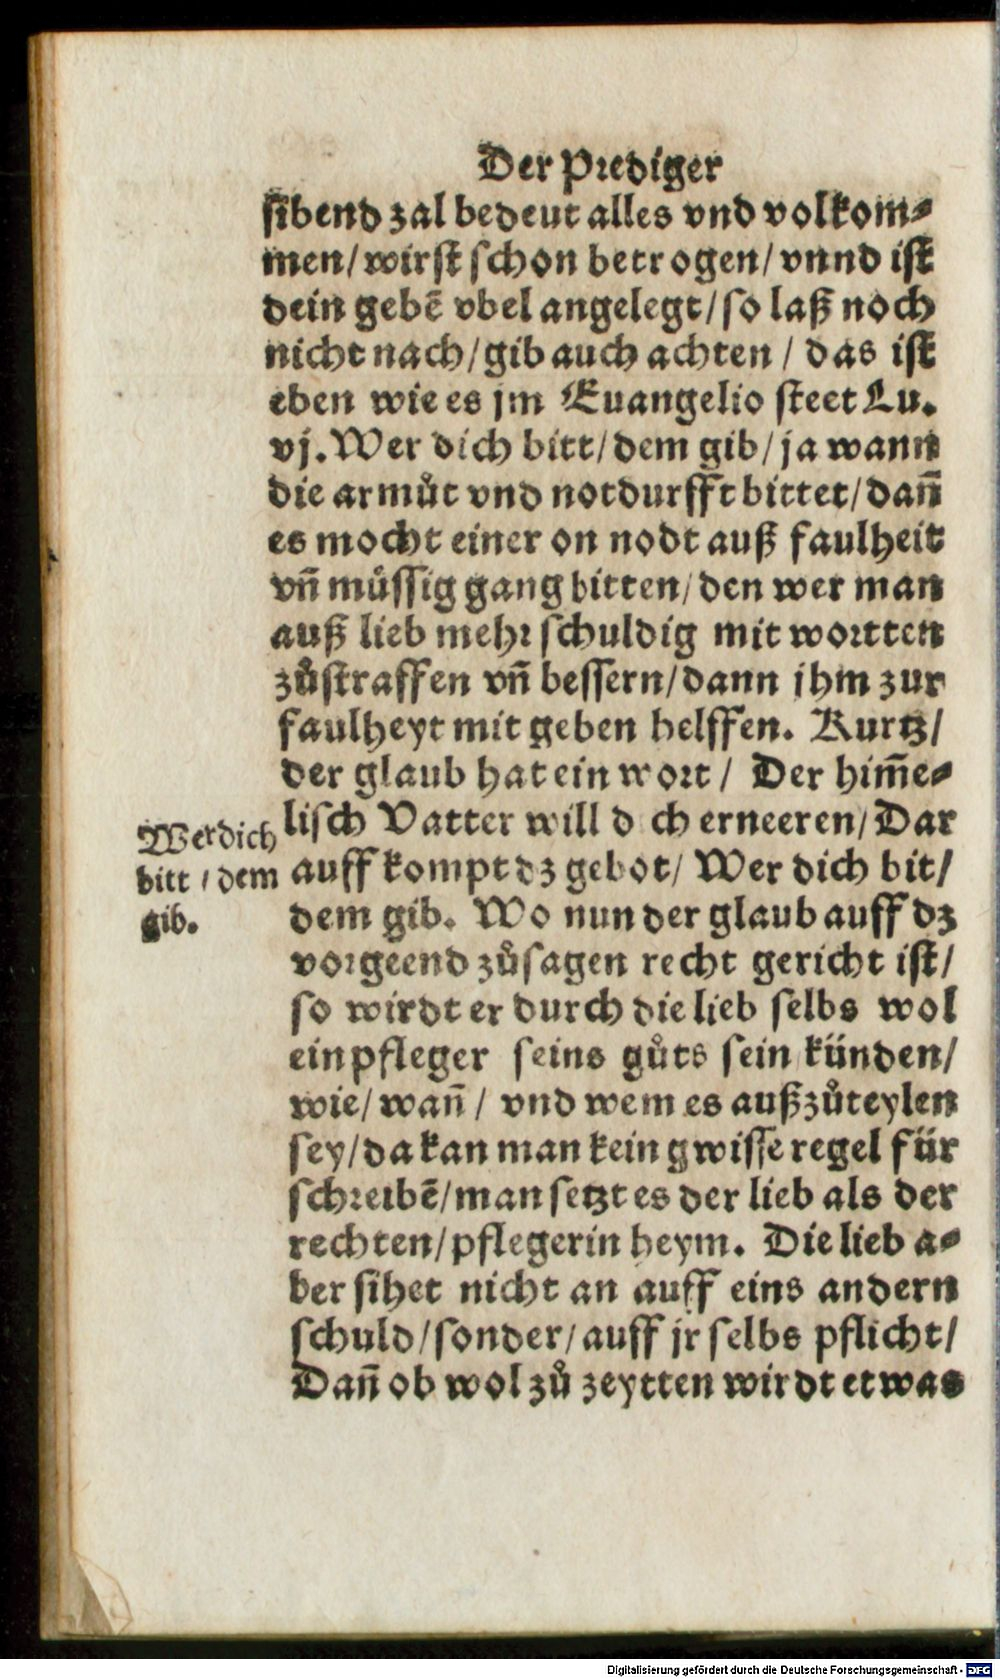 Der Prediger
sibend zal bedeut alles vnd volkom⸗
men/ wirst schon betrogen/ vnnd ist
dein gebẽ vbel angelegt/ so laß noch
nicht nach/ gib auch achten / das ist
eben wie es jm Euangelio steet Lu.
vj. Wer dich bitt/ dem gib/ ja wann
die armůt vnd notdurfft bittet/ dañ
es mocht einer on nodt auß faulheit
vñ müssig gang bitten/ den wer man
auß lieb mehr schuldig mit wortten
zůstraffen vñ bessern/ dann jhm zur
faulheyt mit geben helffen. Kurtz/
der glaub hat ein wort / Der him̃e⸗
lisch Vatter will d ch erneeren/ Dar
auff kompt dz gebot/ Wer dich bit/
dem gib. Wo nun der glaub auff dz
vorgeend zůsagen recht gericht ist/
so wirdt er durch die lieb selbs wol
ein pfleger seins gůts sein künden/
wie/ wañ / vnd wem es außzůteylen
sey/ da kan man kein gwisse regel für
schreibẽ/ man setzt es der lieb als der
rechten/ pflegerin heym. Die lieb a⸗
ber sihet nicht an auff eins andern
schuld/ sonder/ auff jr selbs pflicht/
Dañ ob wol zů zeytten wirdt etwas
Wer dich
bitt / dem
gib.
Digitalisierung gefördert durch die Deutsche Forschungsgemeinschaft - DFG